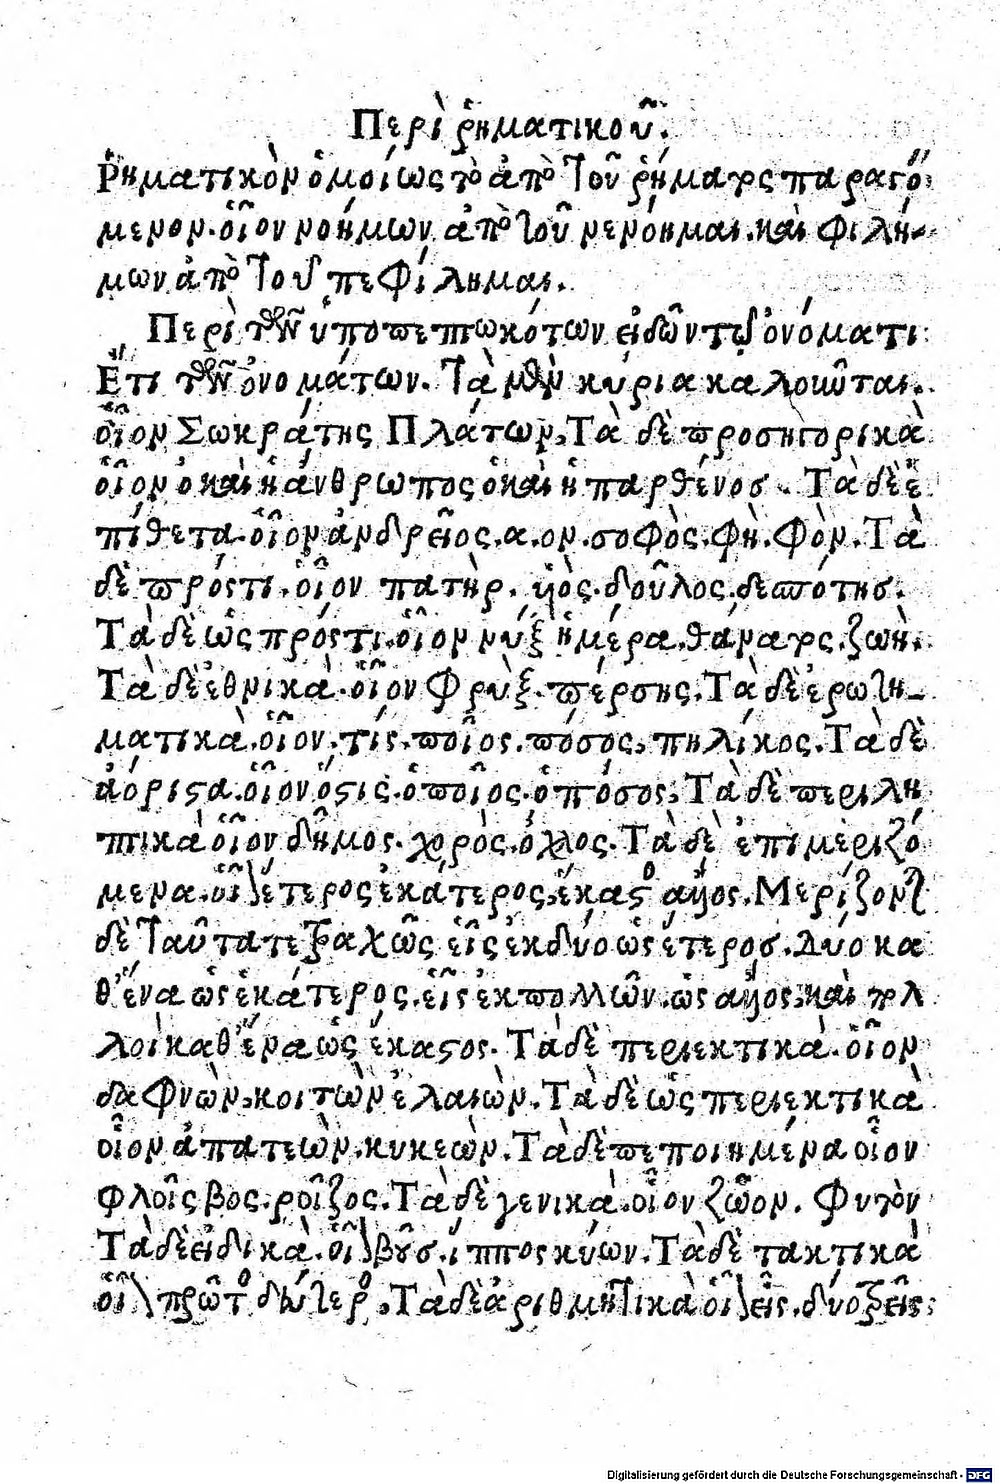 Περὶ ῥηματικοῦ.
Ῥηματικὸν ὁμοίως τὸ ἀπὸ τοῦ ῥήματος παραγό
μενον. οἷον νοήμων ἀπὸ τοῦ νενόημαι. καὶ Φιλή-
μων ἀπὸ τοῦ πεφίλημαι.
Περὶ τῶν ὑποπεπτωκότων εἰδῶν τῷ ὀνόματι
Ἔτι τῶν ὀνομάτων. Τὰ μὲν κύρια καλοῦται.
οἷον Σωκράτης Πλάτων, Τὰ δὲ προσηγορικὰ
οἷον ὁ καὶ ἡ ἄνθρωπος ὁ καὶ ἡ παρθένος. Τὰ δὲ ἐ
πίθετα. οἷον ἀνδρεῖος. α. ον. σοφὸς. φὴ. φὸν. Τὰ
δὲ πρόςτι. οἷον πατὴρ. υἱὸς. δοῦλος. δεσπότησ.
Τὰ δὲ ὡς πρόςτι. οἷον νύξ ἡμέρα. θάνατος. ζωὴ.
Τὰ δὲ ἐθνικὰ. οἷον Φρὺξ. πέρσης. Τὰ δὲ ἐρωτη-
ματικὰ. οἷον. τίς. ποῖος. πόσος, πηλίκος. Τὰ δὲ
ἀόριστα. οἷον ὅστις. ὁποῖος. ὁπόσος, Τὰ δὲ περιλη
πτικὰ οἷον δῆμος. χορὸς. ὄχλος. Τὰ δὲ ἐπιμεριζό
μενα. οἷον ἕτερος ἑκάτερος, ἕκαστος ἄλλος. Μερίζονται
δὲ ταῦτα τετραχῶς εἷς ἐκ δύο ὡς ἕτεροσ. Δύο κα
θ' ἕνα ὡς ἑκάτερος. εἷς ἐκ πολλῶν. ὡς ἄλλος, καὶ πολ
λοὶ καθ' ἕνα ὡς ἕκαστος. Τὰ δὲ περιεκτικὰ. οἷον
δαφνὼν, κοιτὼν ἐλαιὼν. Τὰ δὲ ὡς περιεκτικὰ
οἷον ἀπατεὼν. κυκεὼν. Τὰ δὲ πεποιημένα οἷον
φλοῖςβος. ροῖζος. Τὰ δὲ γενικὰ. οἷον ζῶον. Φυτὸν
Τὰ δὲ εἰδικὰ. οἷον βοῦσ. ἵππος κύων. Τὰ δὲ τακτικὰ
οἷον πρῶτος δεύτερος, Τὰ δὲ ἀριθμητικὰ οἷον εἷς. δύο τρεῖς:
Digitalisierung gefördert durch die Deutsche Forschungsgemeinschaft - DFG